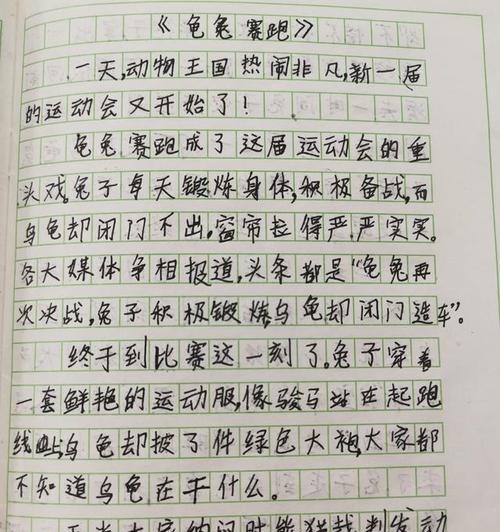 《龟兔赛跑》
一天,动物王国热闹非凡,新一届
的运动会又开始了!
龟兔赛跑成了这届运动会的重
头戏。兔子每天锻炼身体,积极备战,而
乌龟却闭门不出,窗帘拉得严严实实。
各大媒体争相报道,头条都是“龟兔再
次决战,兔子积极锻炼乌龟却闭门造车”。
终于到比赛这一刻了。兔子穿着
一套鲜艳的运动服,像骏马站在起跑
线上,乌龟却披了件绿色大袍,大家都
不知道乌龟在干什么。
正当大家纳闷时,熊猫裁判发动